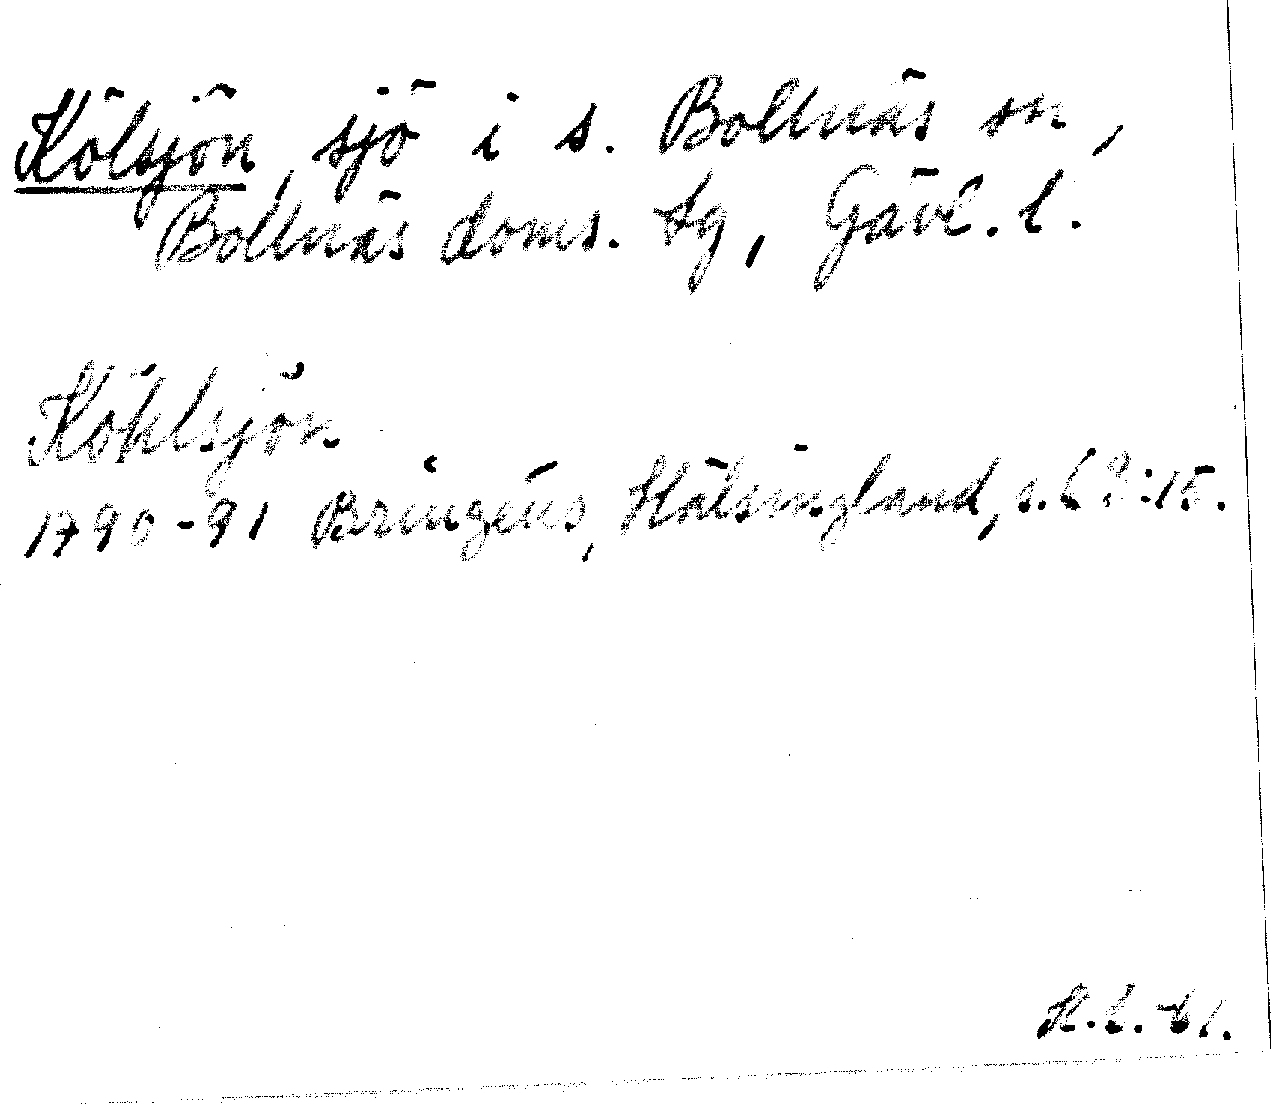 Kölsjön, sjö i s. Bollnäs sn,
Bollnäs doms. tg, Gävl. l.
Köhlsjön
1790-91 Bringéus, Hälsingland, s. :15.